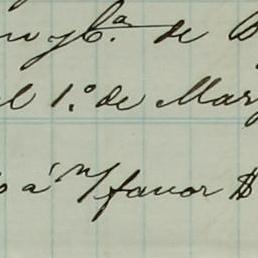 y Cª. de
el 1.º de Mar
á n/ favor $